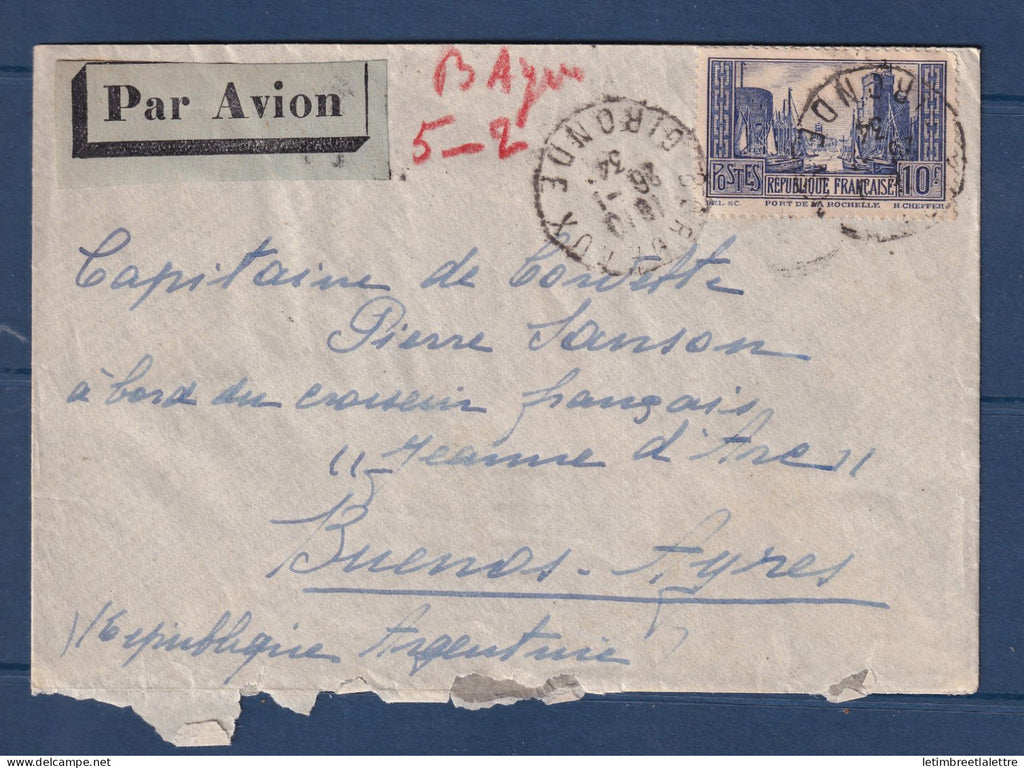 Par Avion
B Ayres
5-2
GIRONDE
26 -1
34
POSTES
RÉPUBLIQUE FRANÇAISE
10F
DEL. SC.
PORT DE LA ROCHELLE
H. CHEFFER
Capitaine de Corvette
Pierre Sanson
à bord du croiseur français
"Jeanne d'Arc"
Buenos-Ayres
République Argentine
letimbreetlalettre
www.delcampe.net